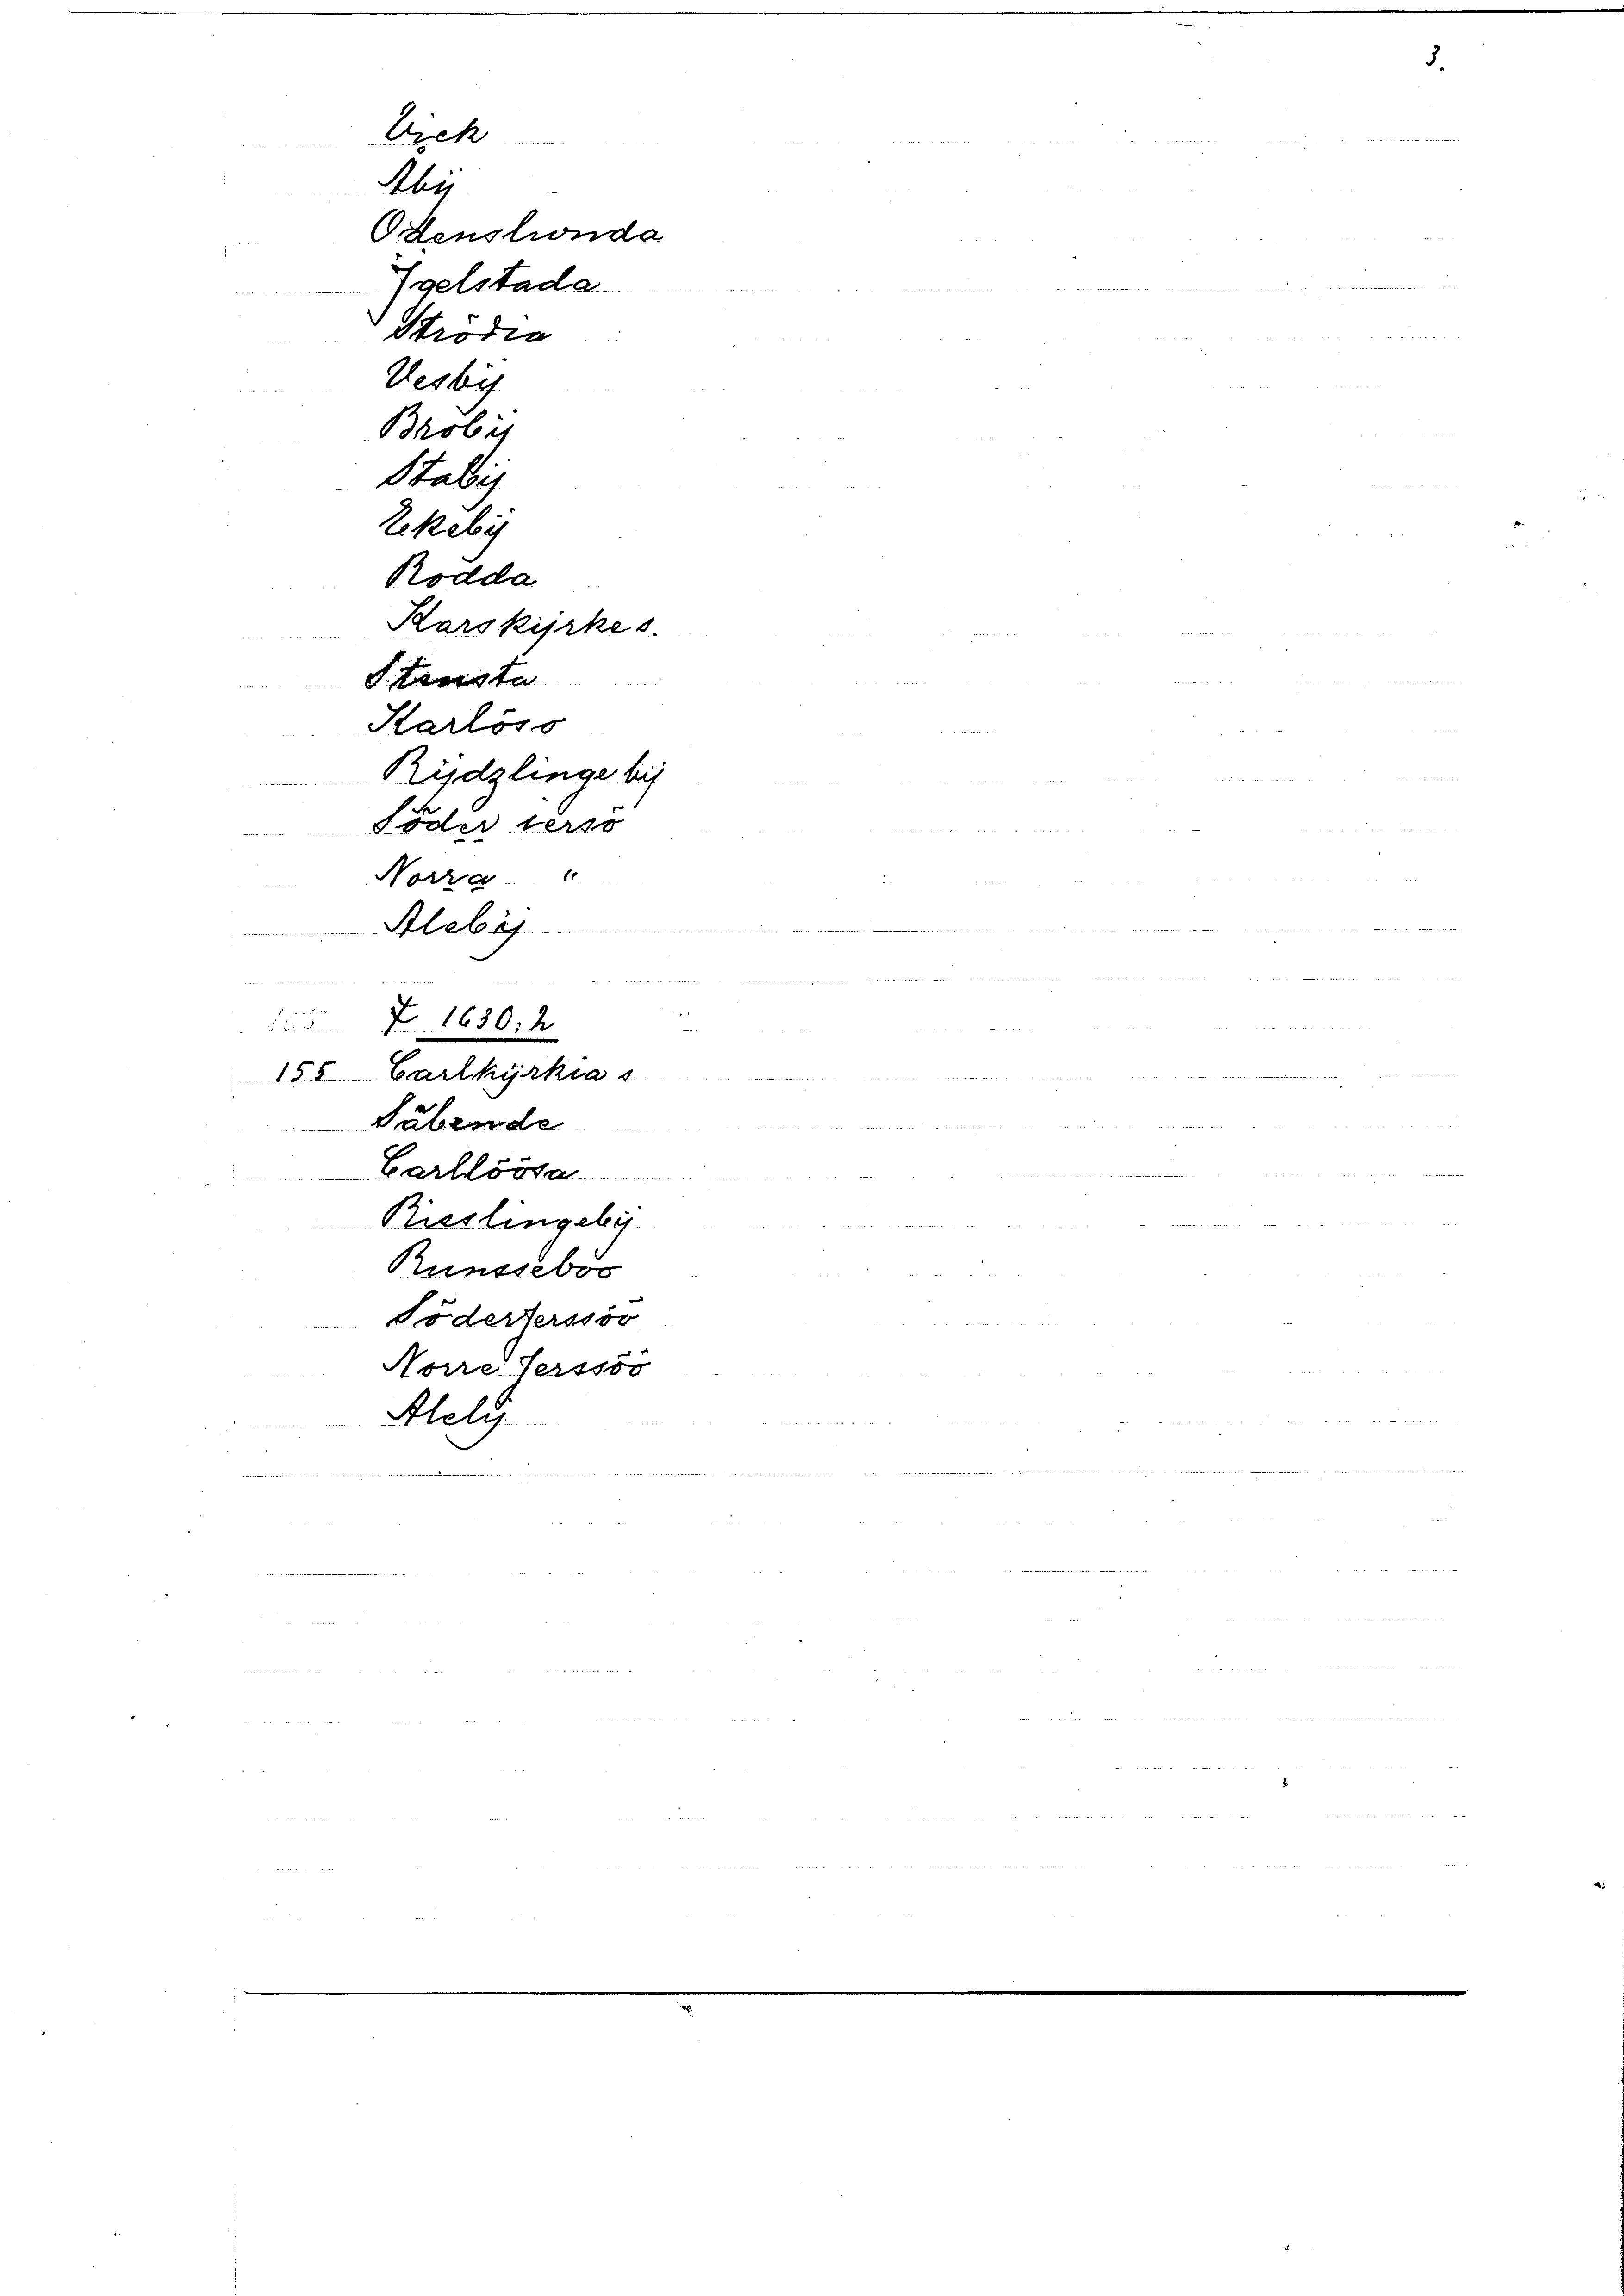 3.
Vick
Abÿ
Odenslunda
Ÿgelstada
Strödia
Vesbÿ
Bröbÿ
Stabÿ
Ekebÿ
Rodda
Karskÿrke s.
Stensta
Karlöso
Rÿdzlinge bÿ
Söder iersö
Norra "
Alebÿ
7 1630:2
155 Carlkÿrkia s
Säbende
Carllöösa
Risslingebÿ
Runsseböö
Söderjerssöö
Norre Jerssöö
Alebÿ